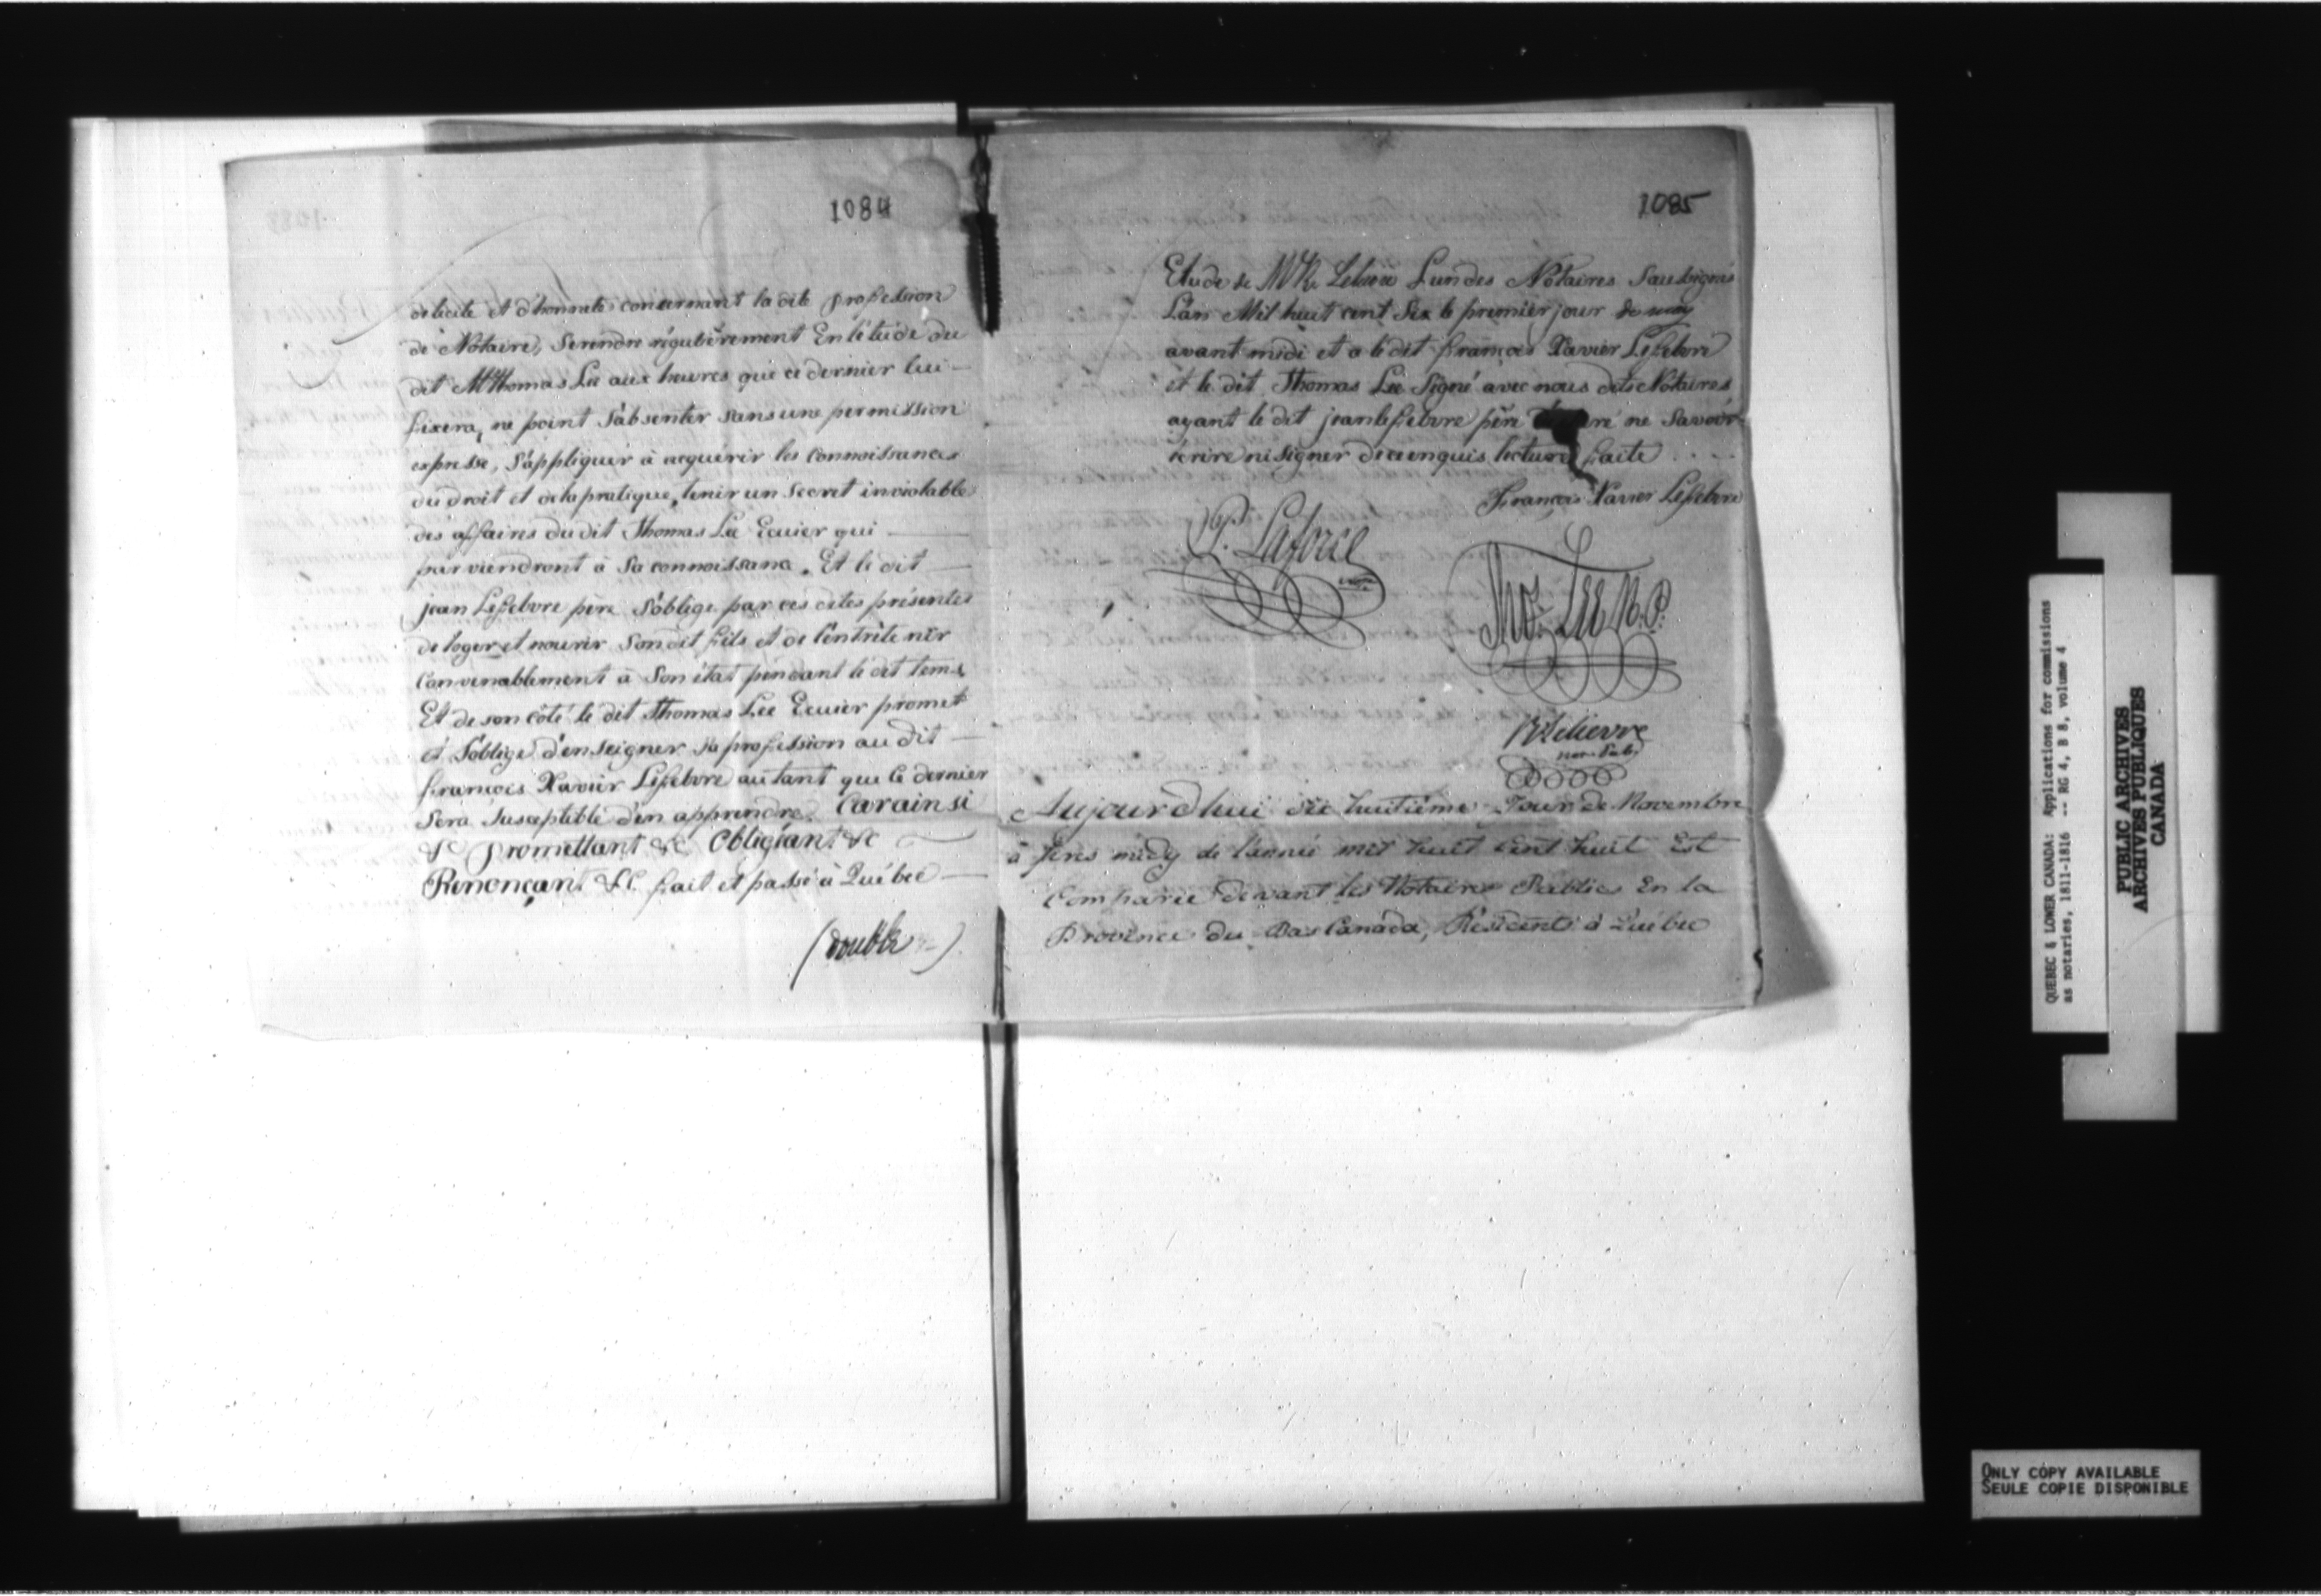 1084
de licite et d'honnete concernant la dite profession
de Notaire, se rendre régulièrement En l'étude du
dit Mr Thomas Lee aux heures que ce dernier lui
fixera, ne point s'absenter sans une permission
expresse, s'appliquer à acquérir les connoissances
du droit et de la pratique, tenir un secret inviolable
des affaires du dit Thomas Lee Ecuier qui
parviendront à sa connoissance. Et le dit
jean Lefebvre père s'oblige par ces dites présentes
de loger et nourir son dit fils et de l'entretenir
Convenablement à son état pendant le dit tems
Et de son côté le dit Thomas Lee Ecuier promet
et s'oblige d'enseigner sa profession au dit
françois Xavier Lefebvre autant que ce dernier
sera susceptible d'en apprendre. Car ainsi
&c promettant &c Obligeant &c
Renonçant &c. fait et passé à Québec
(double)
1085
Etude de Lelievre L'un des Notaires Soussignés
L'an Mil huit cent Six le premier jour de may
avant midi et a le dit françois Xavier Lefebvre
et le dit Thomas Lee Signé avec nous dits Notaires
ayant le dit jean lefebvre père ne savoir
écrire ni signer de ce enquis lecture faite
François Xavier Lefebvre
P. Laforce
Thos. Lee N.P.
R Lelievre
not. Pub.
Aujourd'hui dix huitième Jour de Novembre
à près midy de l'année mil huit cent huit Est
Comparu devant les Notaires Public En la
Province du Bas Canada, Résidents à Québec
QUEBEC & LOWER CANADA: Applications for commissions
as notaries, 1811-1816 -- RG 4, B 8, volume 4
PUBLIC ARCHIVES
ARCHIVES PUBLIQUES
CANADA
ONLY COPY AVAILABLE
SEULE COPIE DISPONIBLE